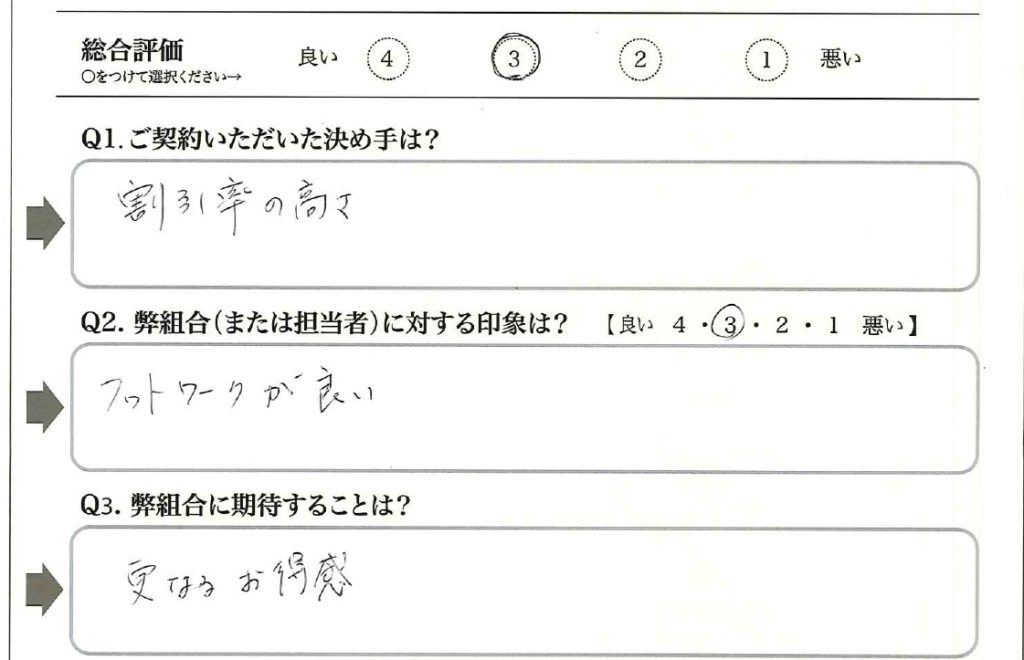 総合評価 良い 4 3 2 1 悪い
○をつけて選択ください→
Q1. ご契約いただいた決め手は?
割引率の高さ
Q2. 弊組合(または担当者)に対する印象は? 【良い 4・3・2・1 悪い】
フットワークが良い
Q3. 弊組合に期待することは?
更なるお得感